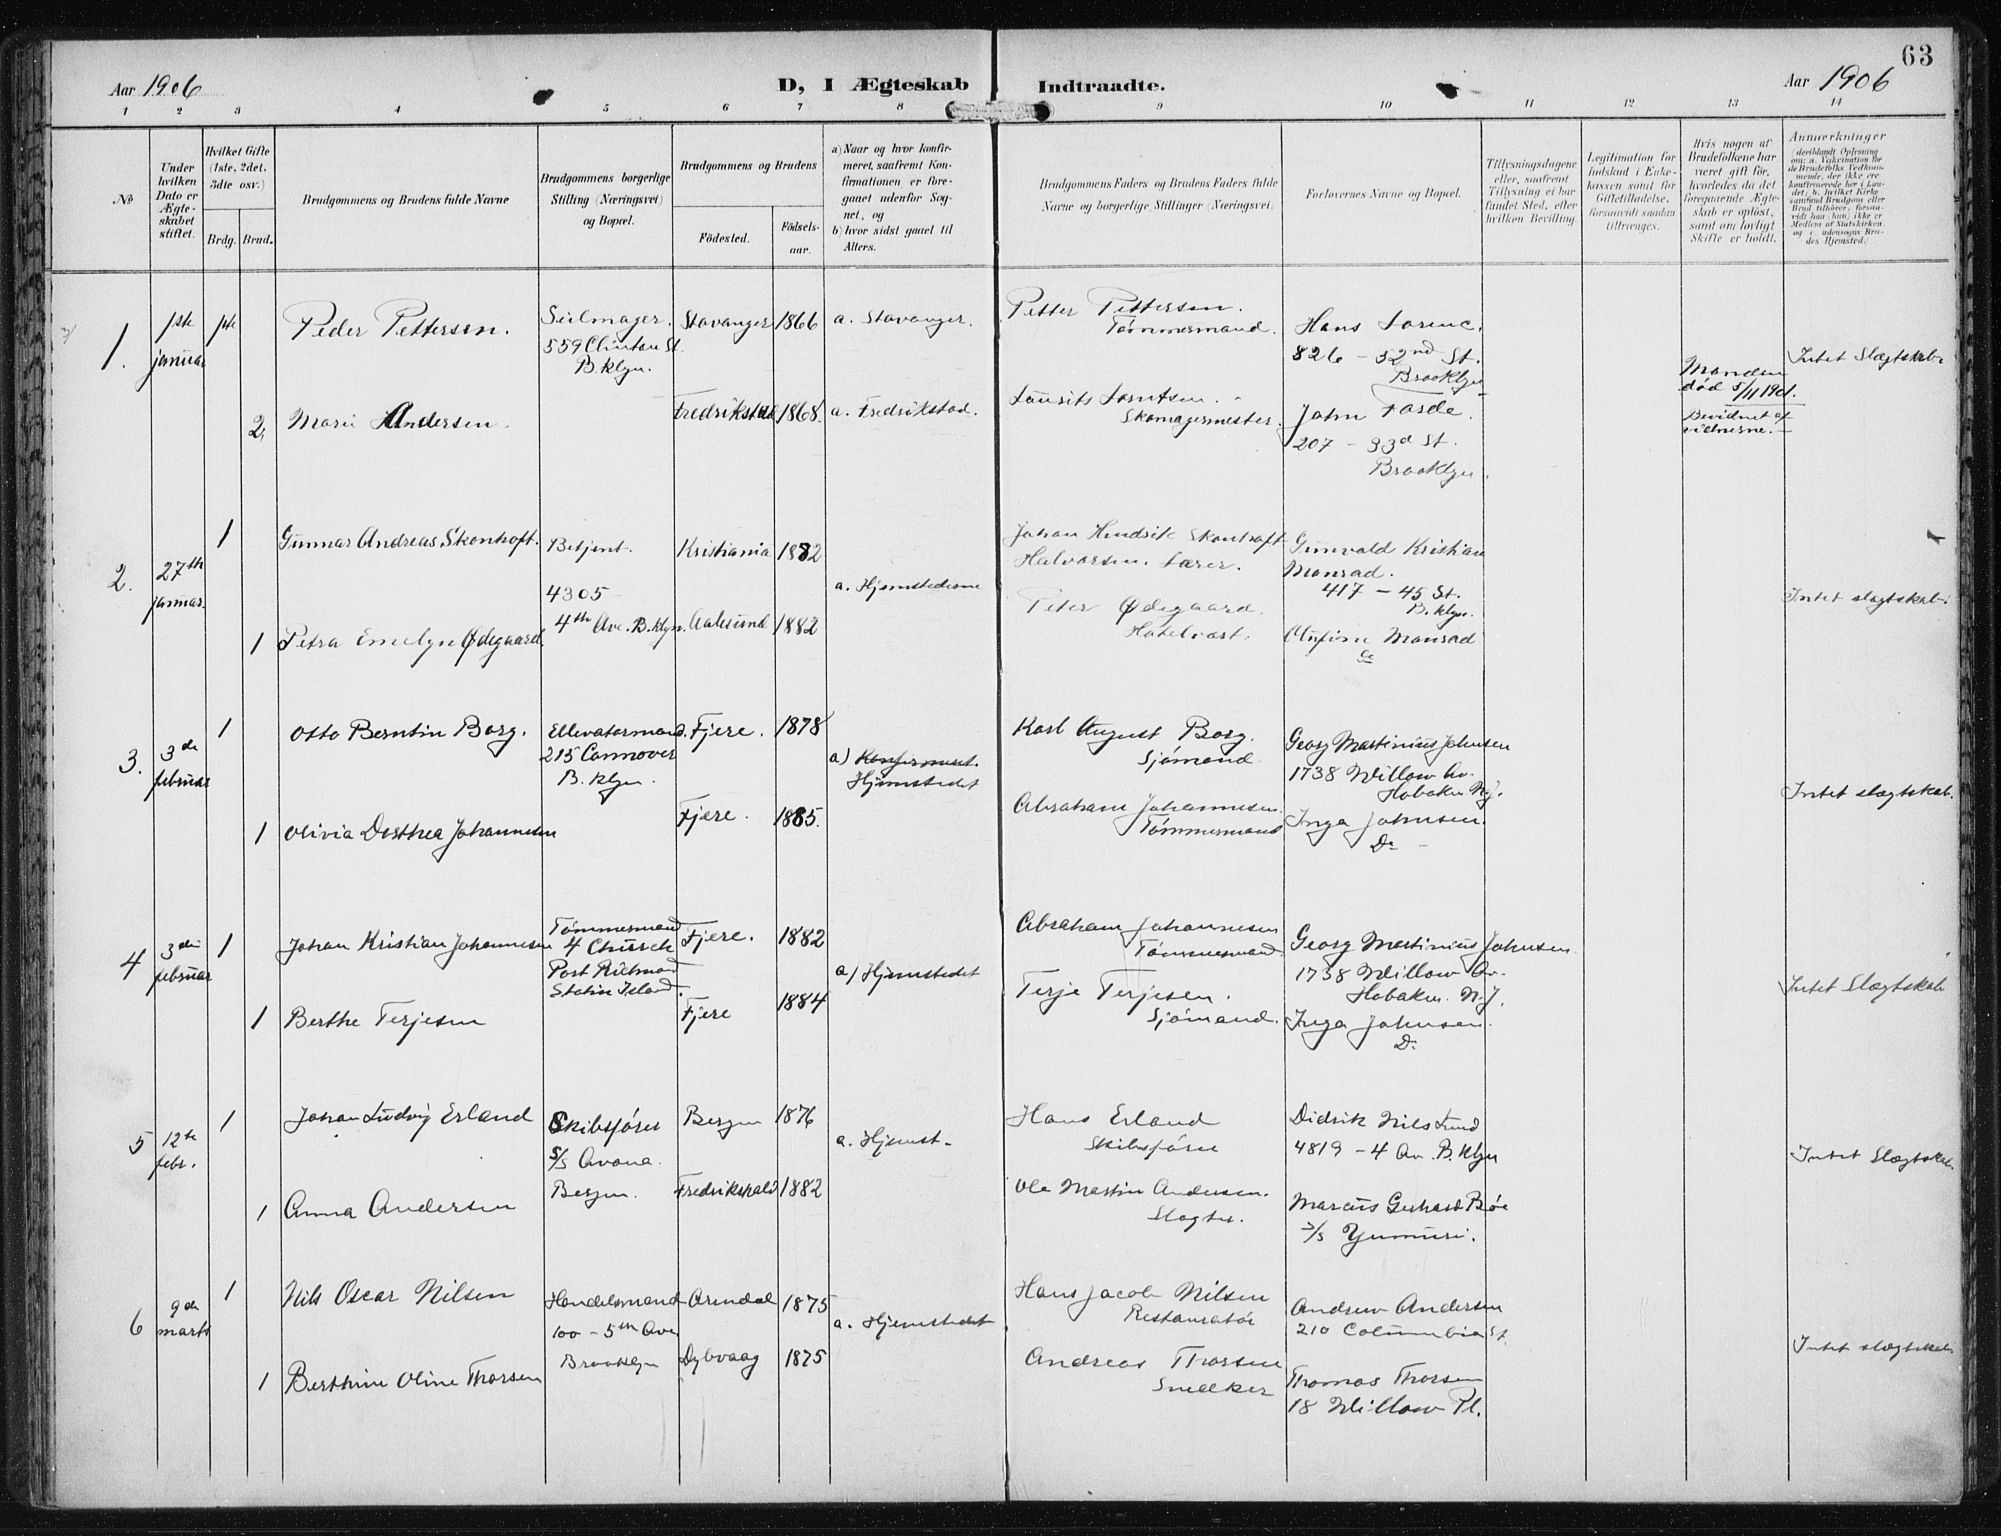 63
Aar 1906
D, I Ægteskab
Indtraadte.
Aar 1906
1 2 3 4 5 6 7 8 9 10 11 12 13 14
No
Under hvilken Dato er Ægteskabet stiftet.
Hvilket Gifte (1ste, 2det, 3die osv.)
Brdg. Brud.
Brudgommens og Brudens fulde Navne
Brudgommens borgerlige Stilling (Næringsvei) og Bopæl.
Brudgommens og Brudens
Fødested.
Fødsels-aar.
a) Naar og hvor konfirmeret, saafremt Konfirmationen er foregaaet udenfor Sognet, og
b) hvor sidst gaaet til Alters.
Brudgommens Faders og Brudens Faders fulde Navne og borgerlige Stillinger (Næringsvei)
Forlovernes Navne og Bopæl.
Tillysningsdagene eller, saafremt Tillysning ei har fundet Sted, efter hvilken Bevilling
Legitimation for Indskud i Enkekassen samt for Giftetilladelse, forsaavidt saadan tiltrænges.
Hvis nogen af Brudefolkene har været gift før, hvorledes da det foregaaende Ægteskab er opløst, samt om lovligt Skifte er holdt.
Anmerkninger
1.
1ste januar
1ste
Peder Pettersen.
Seilmager.
559 Clinton St.
B.klyn.
Stavanger
1866
a. Stavanger.
Petter Pettersen.
Tømmermand.
Hans Lorenc.
826 – 52nd St.
Brooklyn
2,
Marie Andersen.
Fredrikstad
1868.
a. Fredrikstad.
Laurits Lorntsen.
Skomagermester.
John Forde.
207 – 33d St.
Brooklyn.
Manden
død 5/11 1901.
Bevidnet af
vidnerne. –
Intet Slægtskab.
2.
27th januar.
1
Gunnar Andreas Skonhoft.
Betjent.
4305
4th Ave. B.klyn.
Kristiania
1882
a. Hjemstederne
Johan Hendrik Skonhoft
Halvorsen. Lærer.
Gunvald Kristian
Monrad.
417 – 45 St.
B. klyn.
Intet slægtskab.
1
Petra Emelyn Ødegaard.
Aalesund
1882
Peter Ødegaard.
Hotelvært.
Olufine Monrad
3.
3de februar
1
Otto Berntin Borg.
Ellevatormand.
215 Connover
B. klyn.
Fjere.
1878
a) Konfirmeret.
Hjemstedet
Karl August Borg.
Sjømand.
Georg Martinius Johnsen
1738 Willow Av.
Hoboken N.J.
Intet slægtskab.
1
Olivia Dorthea Johannesen
Fjere.
1885.
Abraham Johannesen.
Tømmermand
Inga Johnsen.
Do –
4
3die februar
1
Johan Kristian Johannesen
Tømmermand
4 Church
Port Richmond
Staten Island.
Fjere.
1882
a) Hjemstedet
Abraham Johannesen
Tømmermand
Georg Martinius Johnsen.
1738 Willow Av.
Hoboken. N.J.
Intet Slægtskab
1
Berthe Terjesen
Fjere
1884
Terje Terjesen.
Sjømand.
Inga Johnsen.
Do
5
12te febr.
1
Johan Ludvig Erland
Skibsfører
S/S Avona.
Bergen.
Bergen
1876
a. Hjemst-
Hans Erland
Skibsfører
Didrik Nils Lund
4819 – 4 Av. B.klyn
Intet Slægtskab.
1
Anna Andersen
Fredrikshald
1882
Ole Martin Andersen.
Slagter.
Marcus Gerhard Bøe
S/S Yumuri.
6
9de marts
1
Nils Oscar Nilsen
Handelsmand
100 – 5th Ave
Brooklyn
Arendal
1875
a. Hjemstedet
Hans Jacob Nilsen
Restauratør
Andrew Andersen
210 Columbia St.
Intet slægtskab
1
Berthine Oline Thorsen
Dybvaag
1875
Andreas Thorsen
Snedker
Thomas Thorsen
18 Willow Pl.